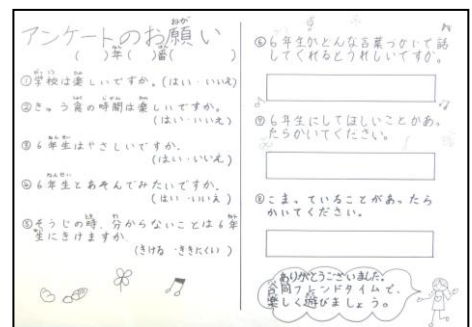 アンケートのお願い
(　)年(　)番(　　　)
①学校は楽しいですか。(はい・いいえ)
②きゅう食の時間は楽しいですか。
(はい・いいえ)
③6年生はやさしいですか。
(はい・いいえ)
④6年生とあそんでみたいですか。
(はい・いいえ)
⑤そうじの時、分からないことは6年
生にきけますか。
(きける・ききにくい)
⑥6年生がどんな言葉づかいで話
してくれるとうれしいですか。
⑦6年生にしてほしいことがあっ
たらかいてください。
⑧こまっていることがあったら
かいてください。
ありがとうございました。
合同フレンドタイムで、
楽しく遊びましょう。